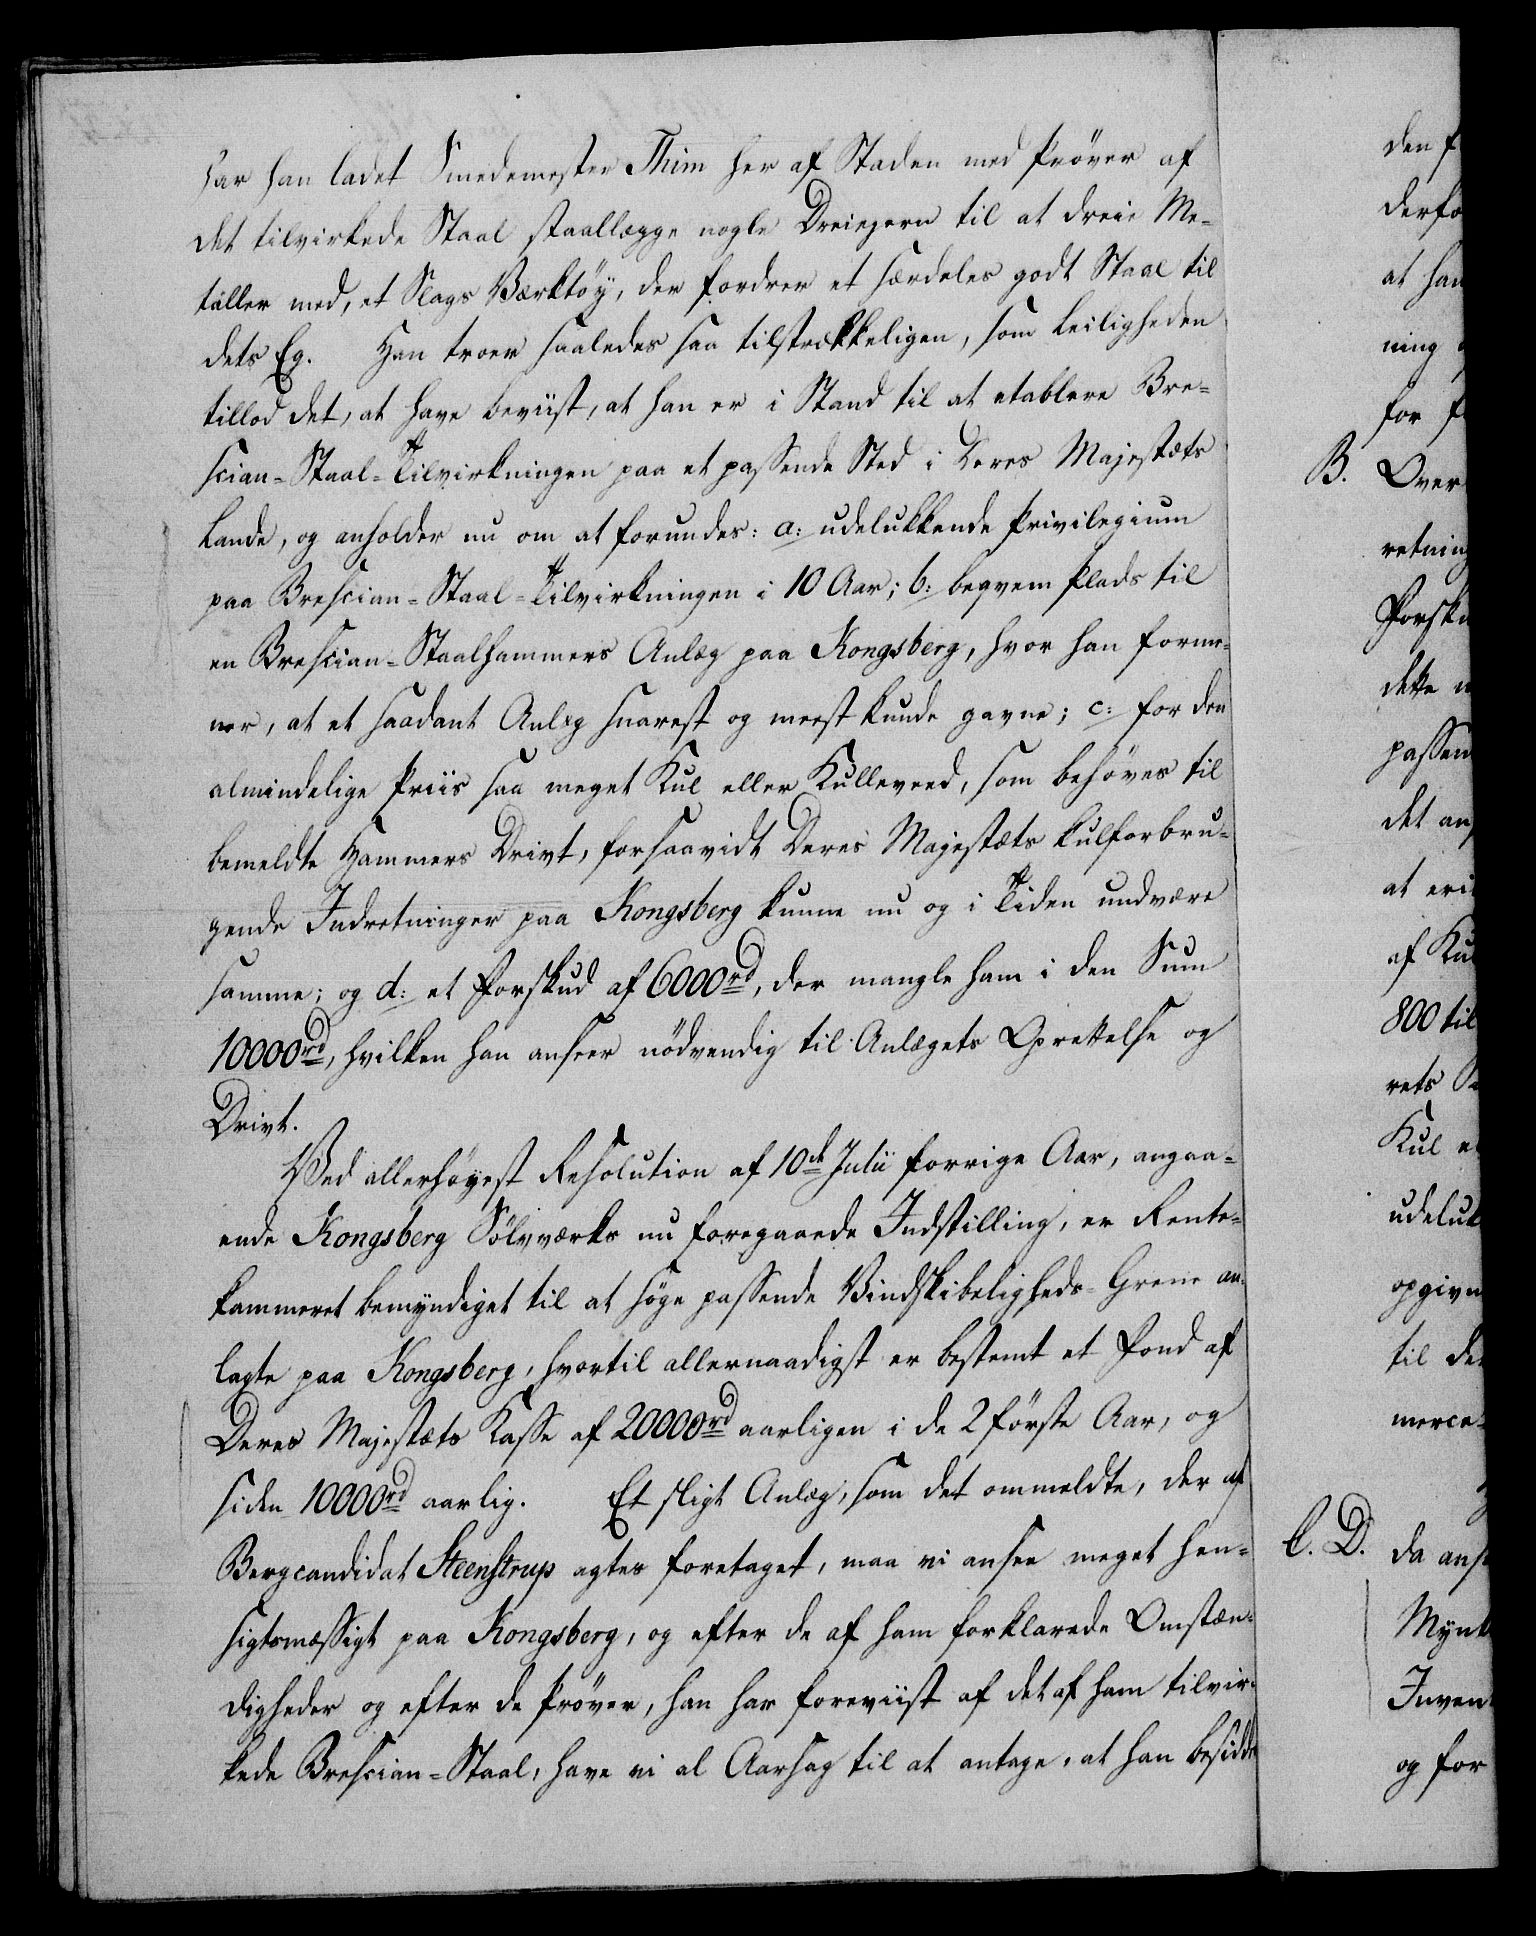 har han ladet Smedemester Thim her af Staden med Pröver af
det tilvirkede Staal staallægge nogle Dreiejern til at dreie Me-
taller med, et Slags Værktöÿ, der fordrer et særdeles godt Staal til
dets Eg. Han troer saaledes saa tilstrækkeligen, som Leiligheden
tillod det, at have beviist, at han er i Stand til at etablere Bre-
scian-Staal-Tilvirkningen paa et passende Sted i Deres Majestæts
Lande, og anholder nu om at forundes: a: udelukkende Privilegium
paa Brescian-Staal-Tilvirkningen i 10 Aar; b: beqvem Plads til
en Brescian-Staalhammers Anlæg paa Kongsberg, hvor han forme-
ner, at et saadant Anlæg snarest og meest kunde gavne; c: for den
almindelige Priis saa meget Kul eller Kulleveed, som behöves til
bemeldte Hammers Drivt, forsaavidt Deres Majestæts kulforbru-
gende Indretninger paa Kongsberg kunne nu og i Tiden undvære
samme; og d: et Forskud af 6000 rd, der mangle ham i den Sum
10000 rd, hvilken han anseer nödvendig til Anlægets Oprettelse og
Drivt.
Ved allerhöyest Resolution af 10de Julii forrige Aar, angaa-
ende Kongsberg Sölvværks nu foregaaede Indstilling, er Rente-
kammeret bemyndiget til at söge passende Vindskibeligheds-Grene an-
lagte paa Kongsberg, hvortil allernaadigst er bestemt et Fond af
Deres Majestæts Kasse af 20000 rd aarligen i de 2 förste Aar, og
siden 10000 rd aarlig. Et sligt Anlæg, som det ommeldte, der af
Bergcandidat Steenstrup agtes foretaget, maa vi ansee meget hen-
sigtsmæssigt paa Kongsberg, og efter de af ham forklarede Omstæn-
digheder og efter de Pröver, han har foreviist af det af ham tilvir-
kede Brescian-Staal, have vi al Aarsag til at antage, at han besidde
den f
derfo
at han
ning
for f
B. Over
retning
Forsku
dette
passen
det an
at eri
af Kul
800 til
rets
Kul
udeluk
opgivn
til det
merce-
C. D. da anse
Mynt
Inven
og for